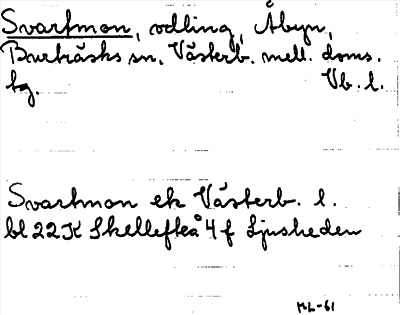 Svartmon, odling, Åbyn,
Burträsks sn, Västerb. mell. doms.
tg. Vb. l.
Svartmon ek Västerb. l.
bl 22K Skellefteå 4 f Ljusheden
ML-61